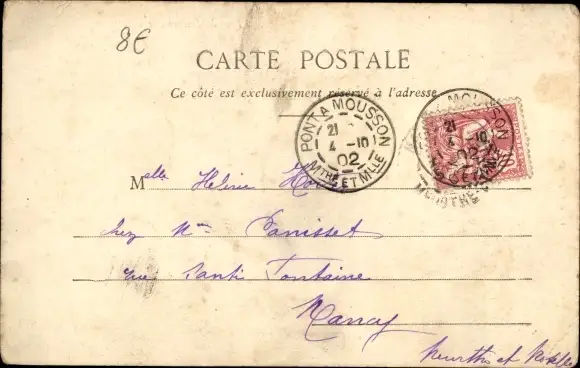 8€
CARTE POSTALE
Ce côté est exclusivement réservé à l'adresse
PONT A MOUSSON
21
4 -10
02
MTHE ET MLLE
MOUSSON
21
4 -10
02
Melle Hélène
chez Mme Panisset
rue Fontaine
Nancy
Meurthe et Moselle